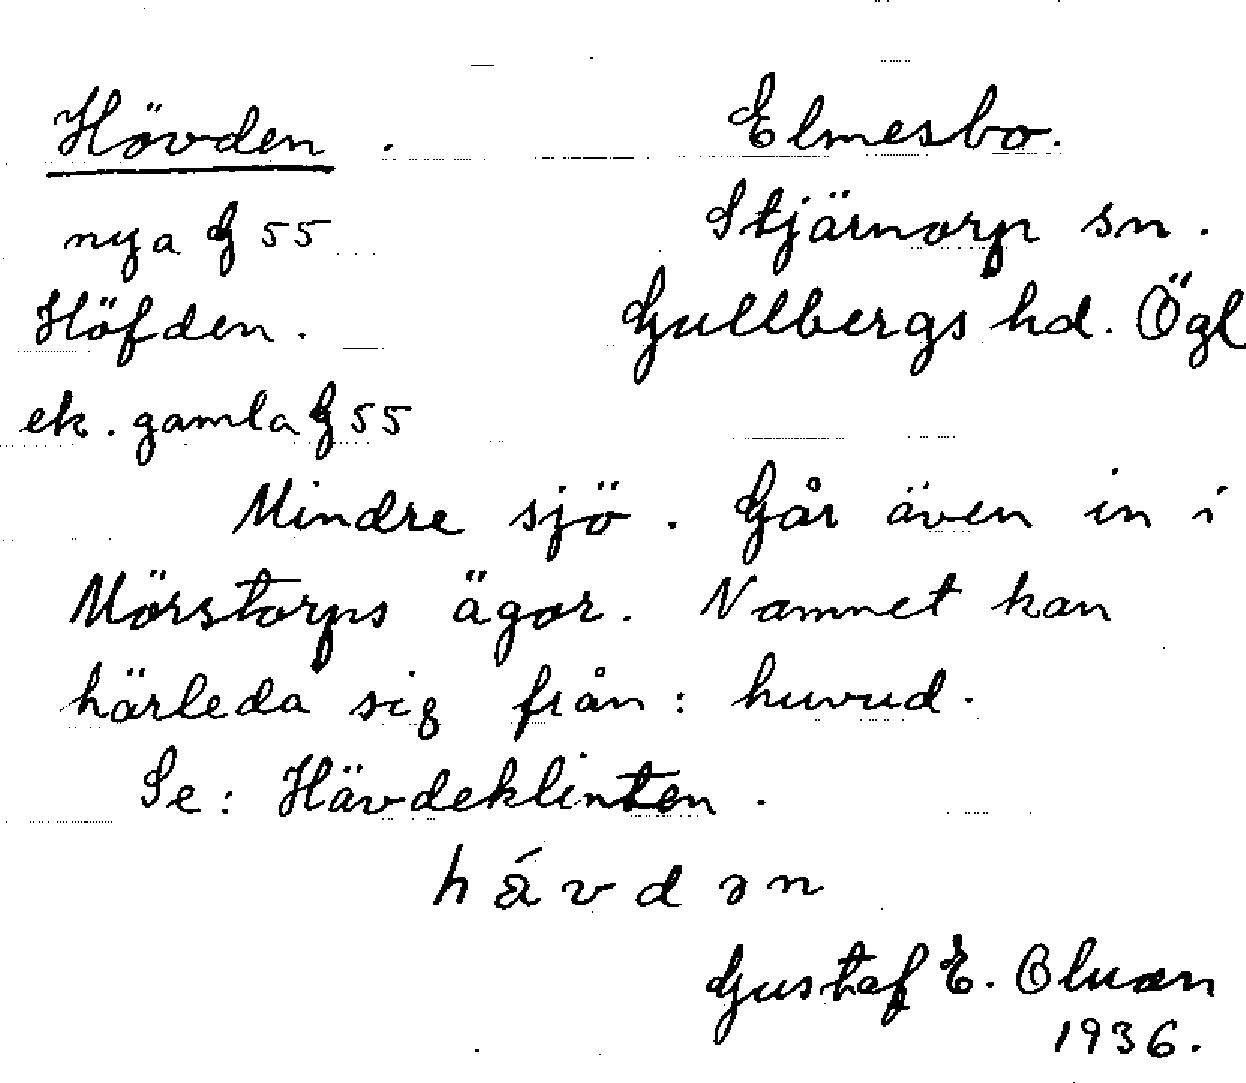 Hövden. Elmesbo.
nya G 55 Stjärnorp sn.
Höfden. Gullbergs hd. Ögl
ek. gamla G 55
Mindre sjö. Går även in i
Mörstorps ägor. Namnet kan
härleda sig från: huvud.
Se: Hävdeklinten.
h ä́ v d ə n
Gustaf E.
1936.